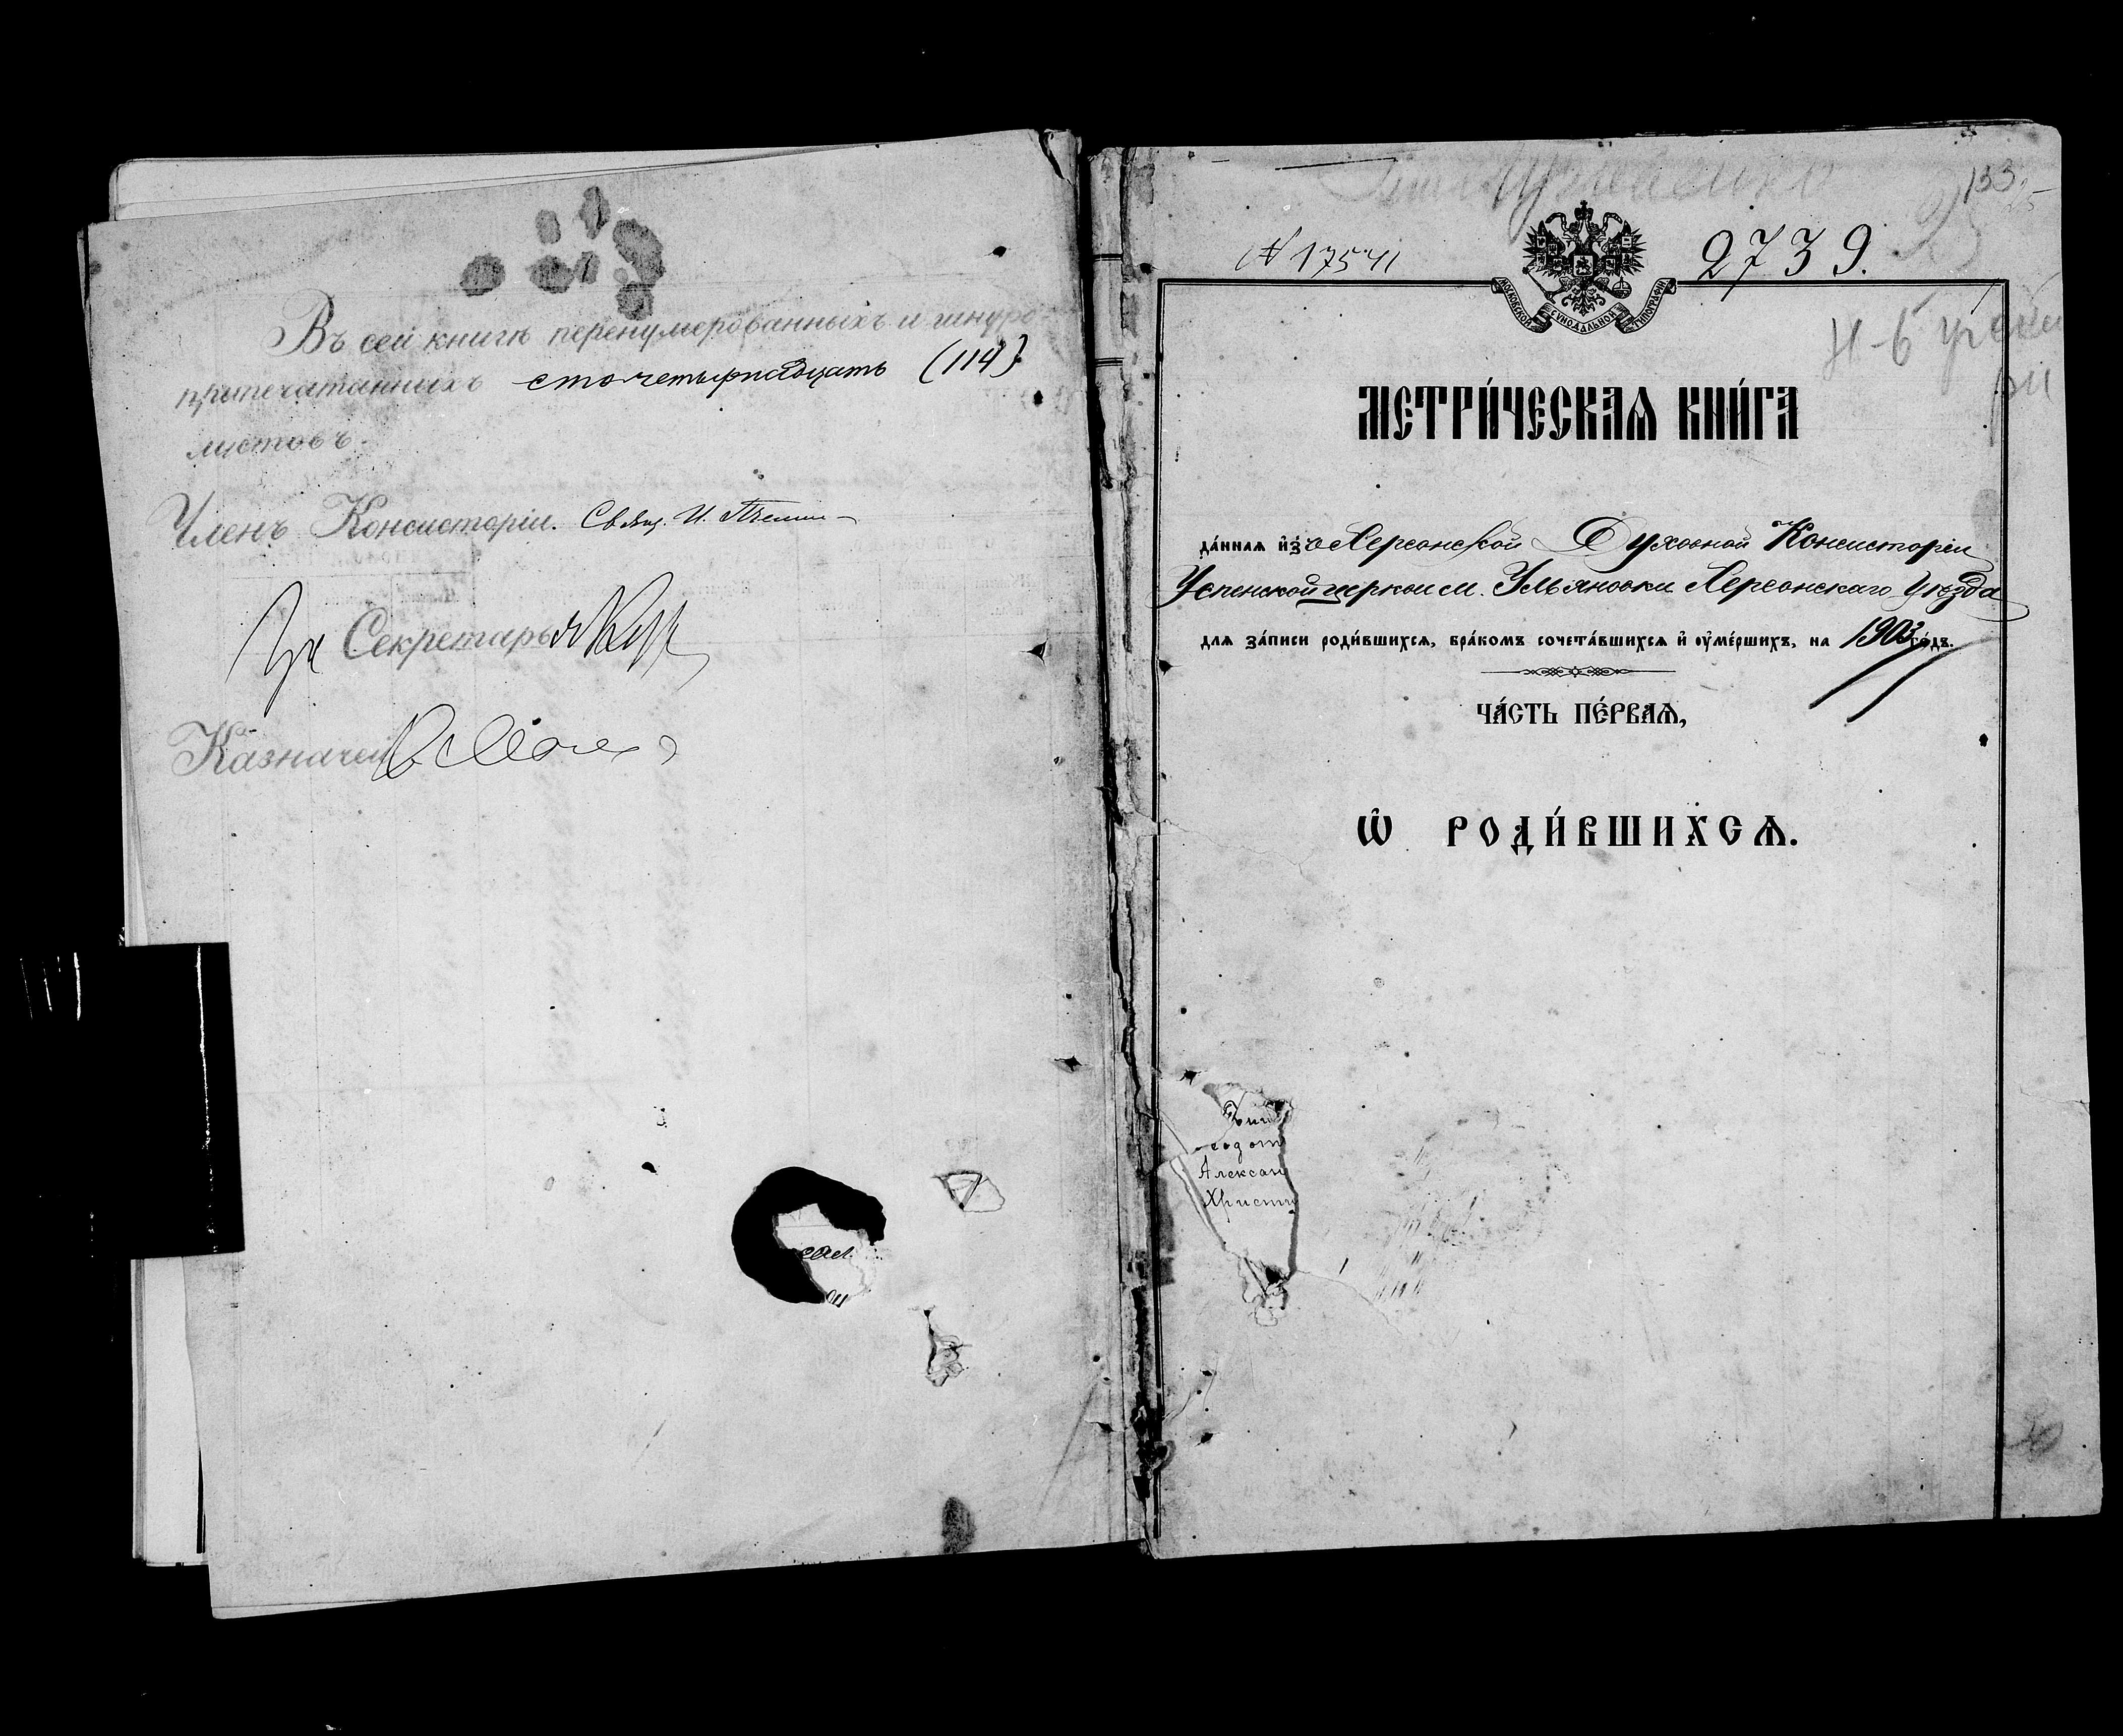 Въ сей книгѣ перенумерованныхъ и шнуро-
припечатанныхъ сто четырнадцать (114)
листовъ.
Членъ Консисторіи. Свящ. И.
Секретарь
Казначей
133
№ 17541
2739.
МОСКОВСКОЙ СѴНОДАЛЬНОЙ ТИПОГРАФІИ
МЕТРИ́ЧЕСКАѦ КНИ́ГА
да́ннаѧ и҆з̾ Херсонской Духовной Консисторіи
Успенской церкви м. Ульяновки Херсонскаго уѣзда
длѧ за́писи роди́вшихсѧ, бра́комъ сочета́вшихсѧ и҆ ᲂу҆ме́ршихъ, на 1903 го́дъ.
ЧА́СТЬ ПЕ́РВАѦ,
Ѡ҆ РОДИ́ВШИХСѦ.
Алексан
Христи